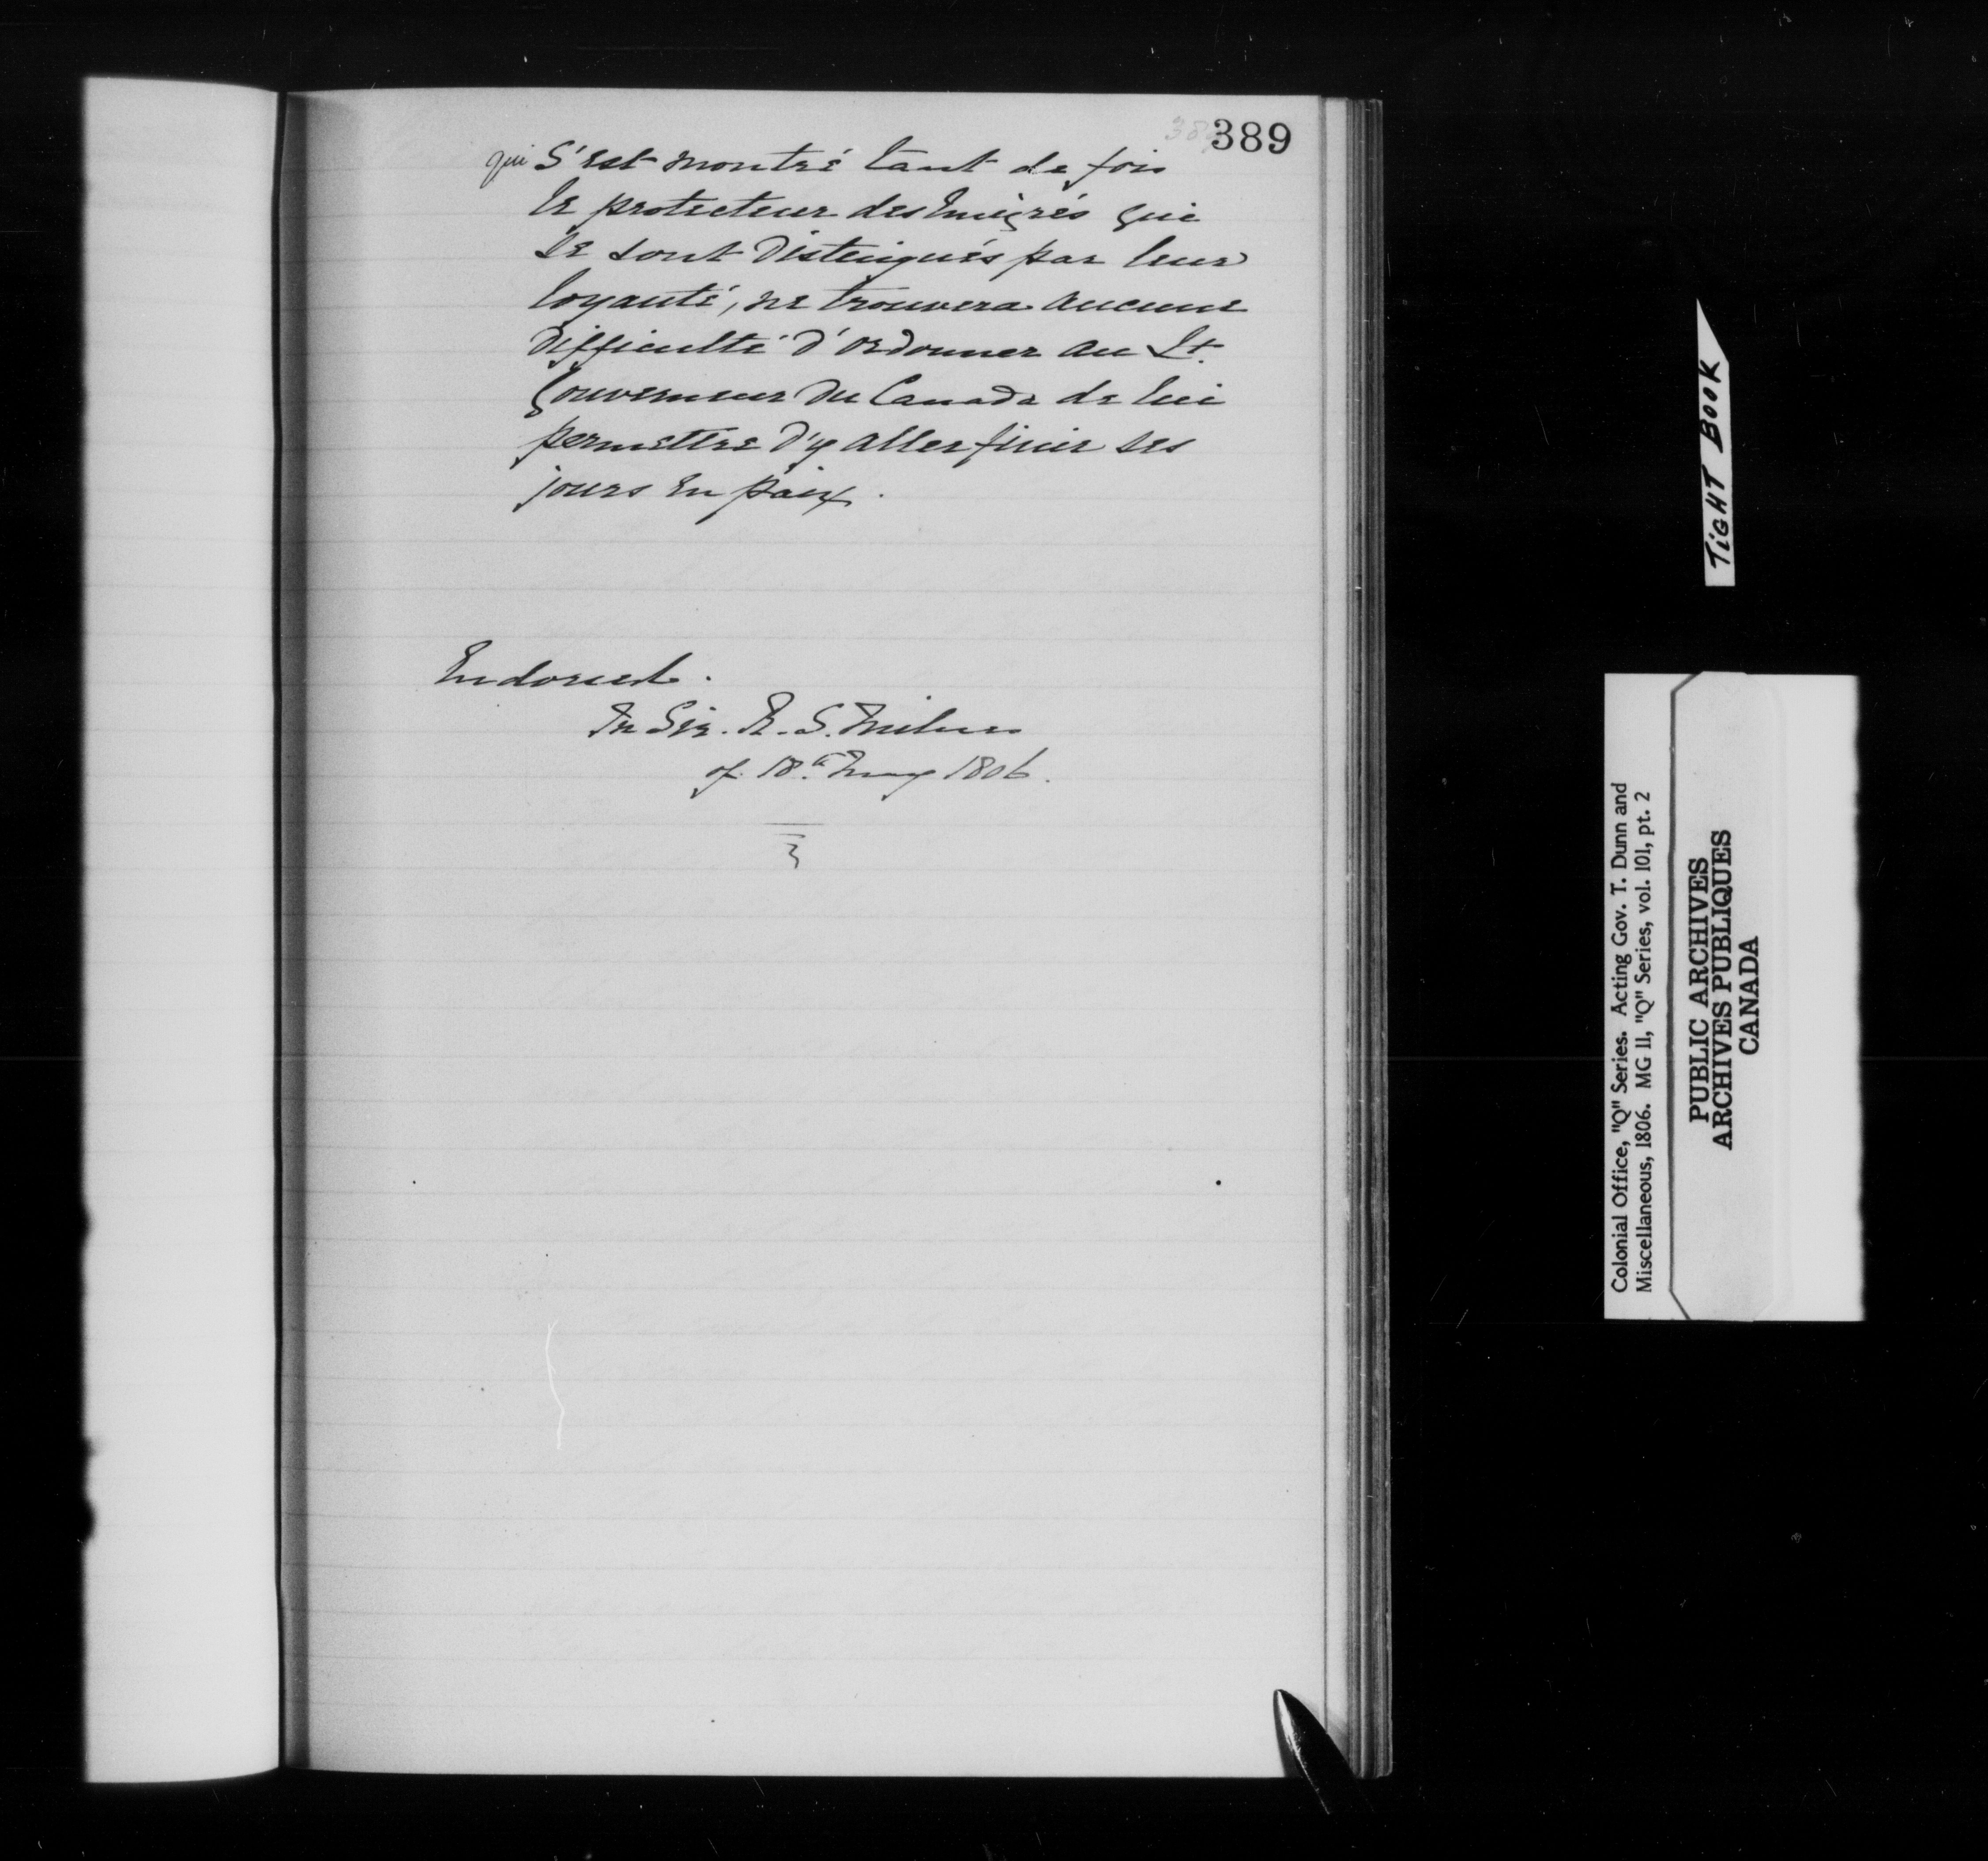 389
qui s'est montré tant de fois
le protecteur des Emigrés qui
se sont distingués par leur
loyauté, ne trouvera aucune
difficulté d'ordonner au Lt.
Gouverneur du Canada de lui
permettre d'y aller finir ses
jours en paix.
Endorsed.
In Sir. R. S. Milnes
of 18th May 1806.
3
TIGHT BOOK
Colonial Office, "Q" Series. Acting Gov. T. Dunn and
Miscellaneous, 1806. MG 11, "Q" Series, vol. 101, pt. 2
PUBLIC ARCHIVES
ARCHIVES PUBLIQUES
CANADA